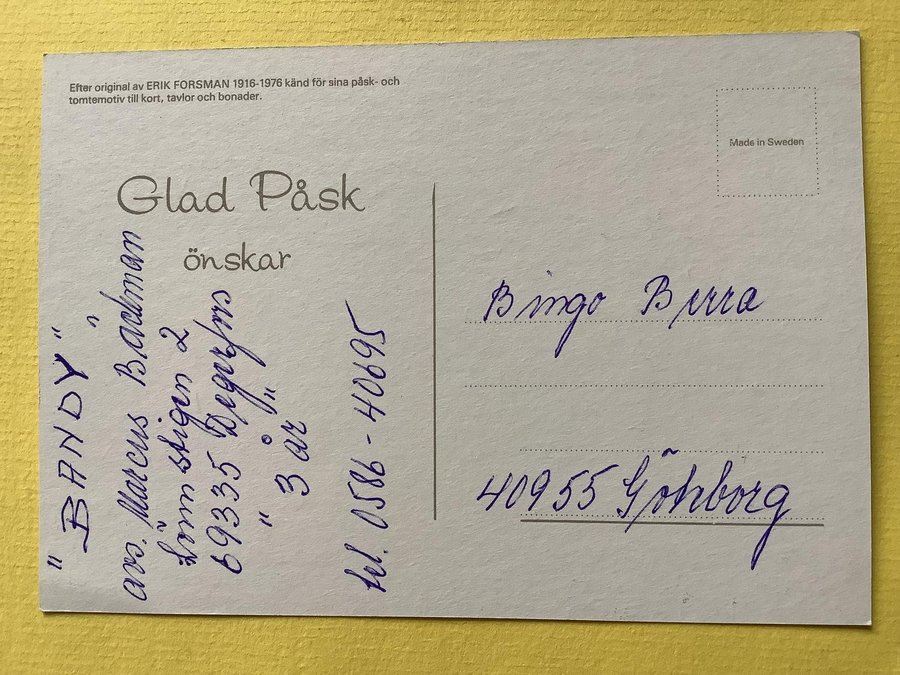 Efter original av ERIK FORSMAN 1916-1976 känd för sina påsk- och
tomtemotiv till kort, tavlor och bonader.
Made in Sweden
Glad Påsk
önskar
"BANDY"
avs. Marcus Bäckman
stigen 2
69335 Degerfors
" 3 år "
tel. 0586-40695
Bingo Berra
40955 Göteborg